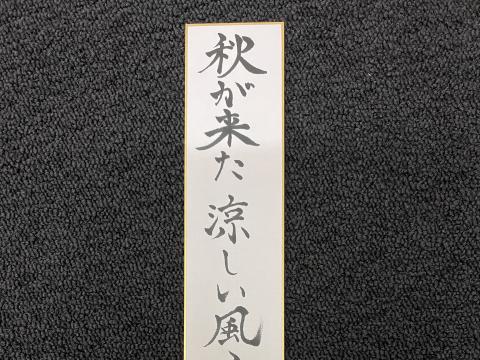 秋が来た 涼しい風